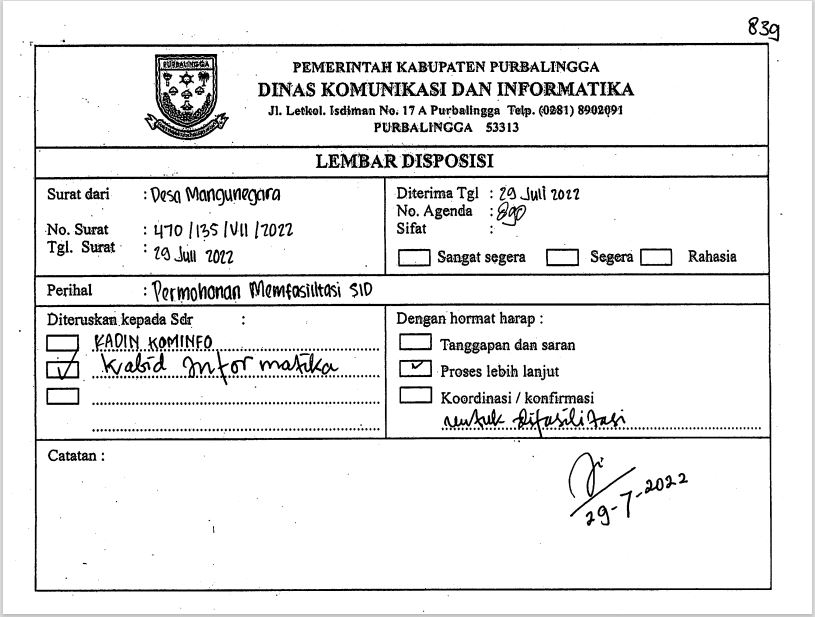 839
PURBALINGGA
PEMERINTAH KABUPATEN PURBALINGGA
DINAS KOMUNIKASI DAN INFORMATIKA
Jl. Letkol. Isdiman No. 17 A Purbalingga Telp. (0281) 8902091
PURBALINGGA 53313
LEMBAR DISPOSISI
Surat dari : Desa Mangunegara
No. Surat : 470 /135 /VII /2022
Tgl. Surat : 29 Juli 2022
Diterima Tgl : 29 Juli 2022
No. Agenda :
Sifat :
Sangat segera Segera Rahasia
Perihal : Permohonan Memfasilitasi SID
Diteruskan kepada Sdr :
KADIN KOMINFO
Kabid Informatika
Dengan hormat harap :
Tanggapan dan saran
Proses lebih lanjut
Koordinasi / konfirmasi
untuk difasilitasi
Catatan :
29-7-2022